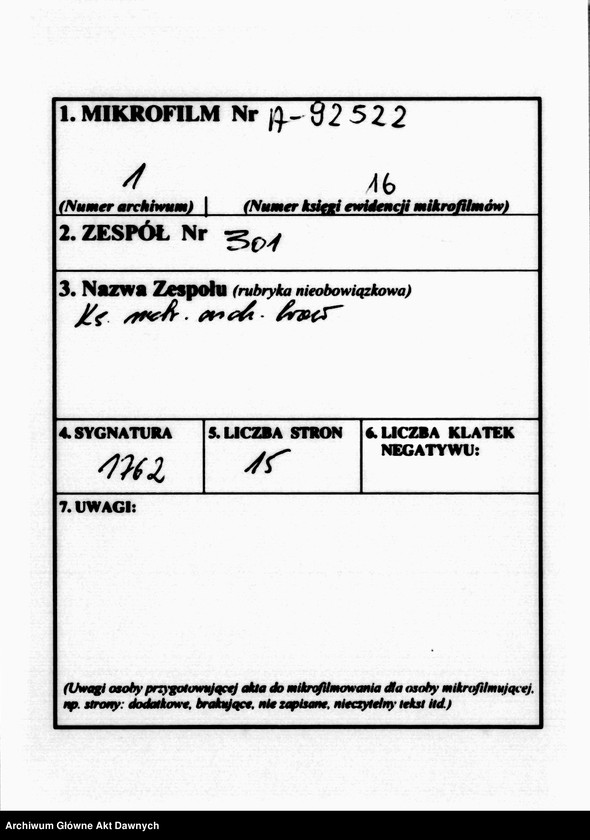 1. MIKROFILM Nr A-92522
1 16
(Numer archiwum) (Numer księgi ewidencji mikrofilmów)
2. ZESPÓŁ Nr 301
3. Nazwa Zespołu (rubryka nieobowiązkowa)
Ks. metr. arch. lwow
4. SYGNATURA 5. LICZBA STRON 6. LICZBA KLATEK
NEGATYWU:
1762 15
7. UWAGI:
(Uwagi osoby przygotowującej akta do mikrofilmowania dla osoby mikrofilmującej,
np. strony: dodatkowe, brakujące, nie zapisane, nieczytelny tekst itd.)
Archiwum Główne Akt Dawnych